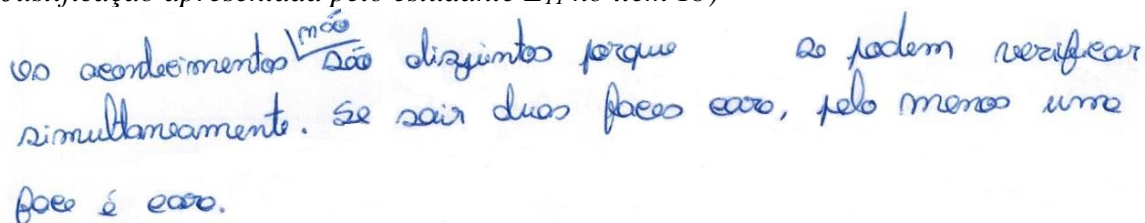 justificação apresentada pelo estudante E11 no item 1b)
os acontecimentos não são disjuntos porque se podem verificar
simultaneamente. Se sair duas faces cara, pelo menos uma
face é cara.